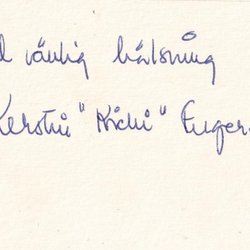 vänlig hälsning
Kerstin "Kicki" Enger